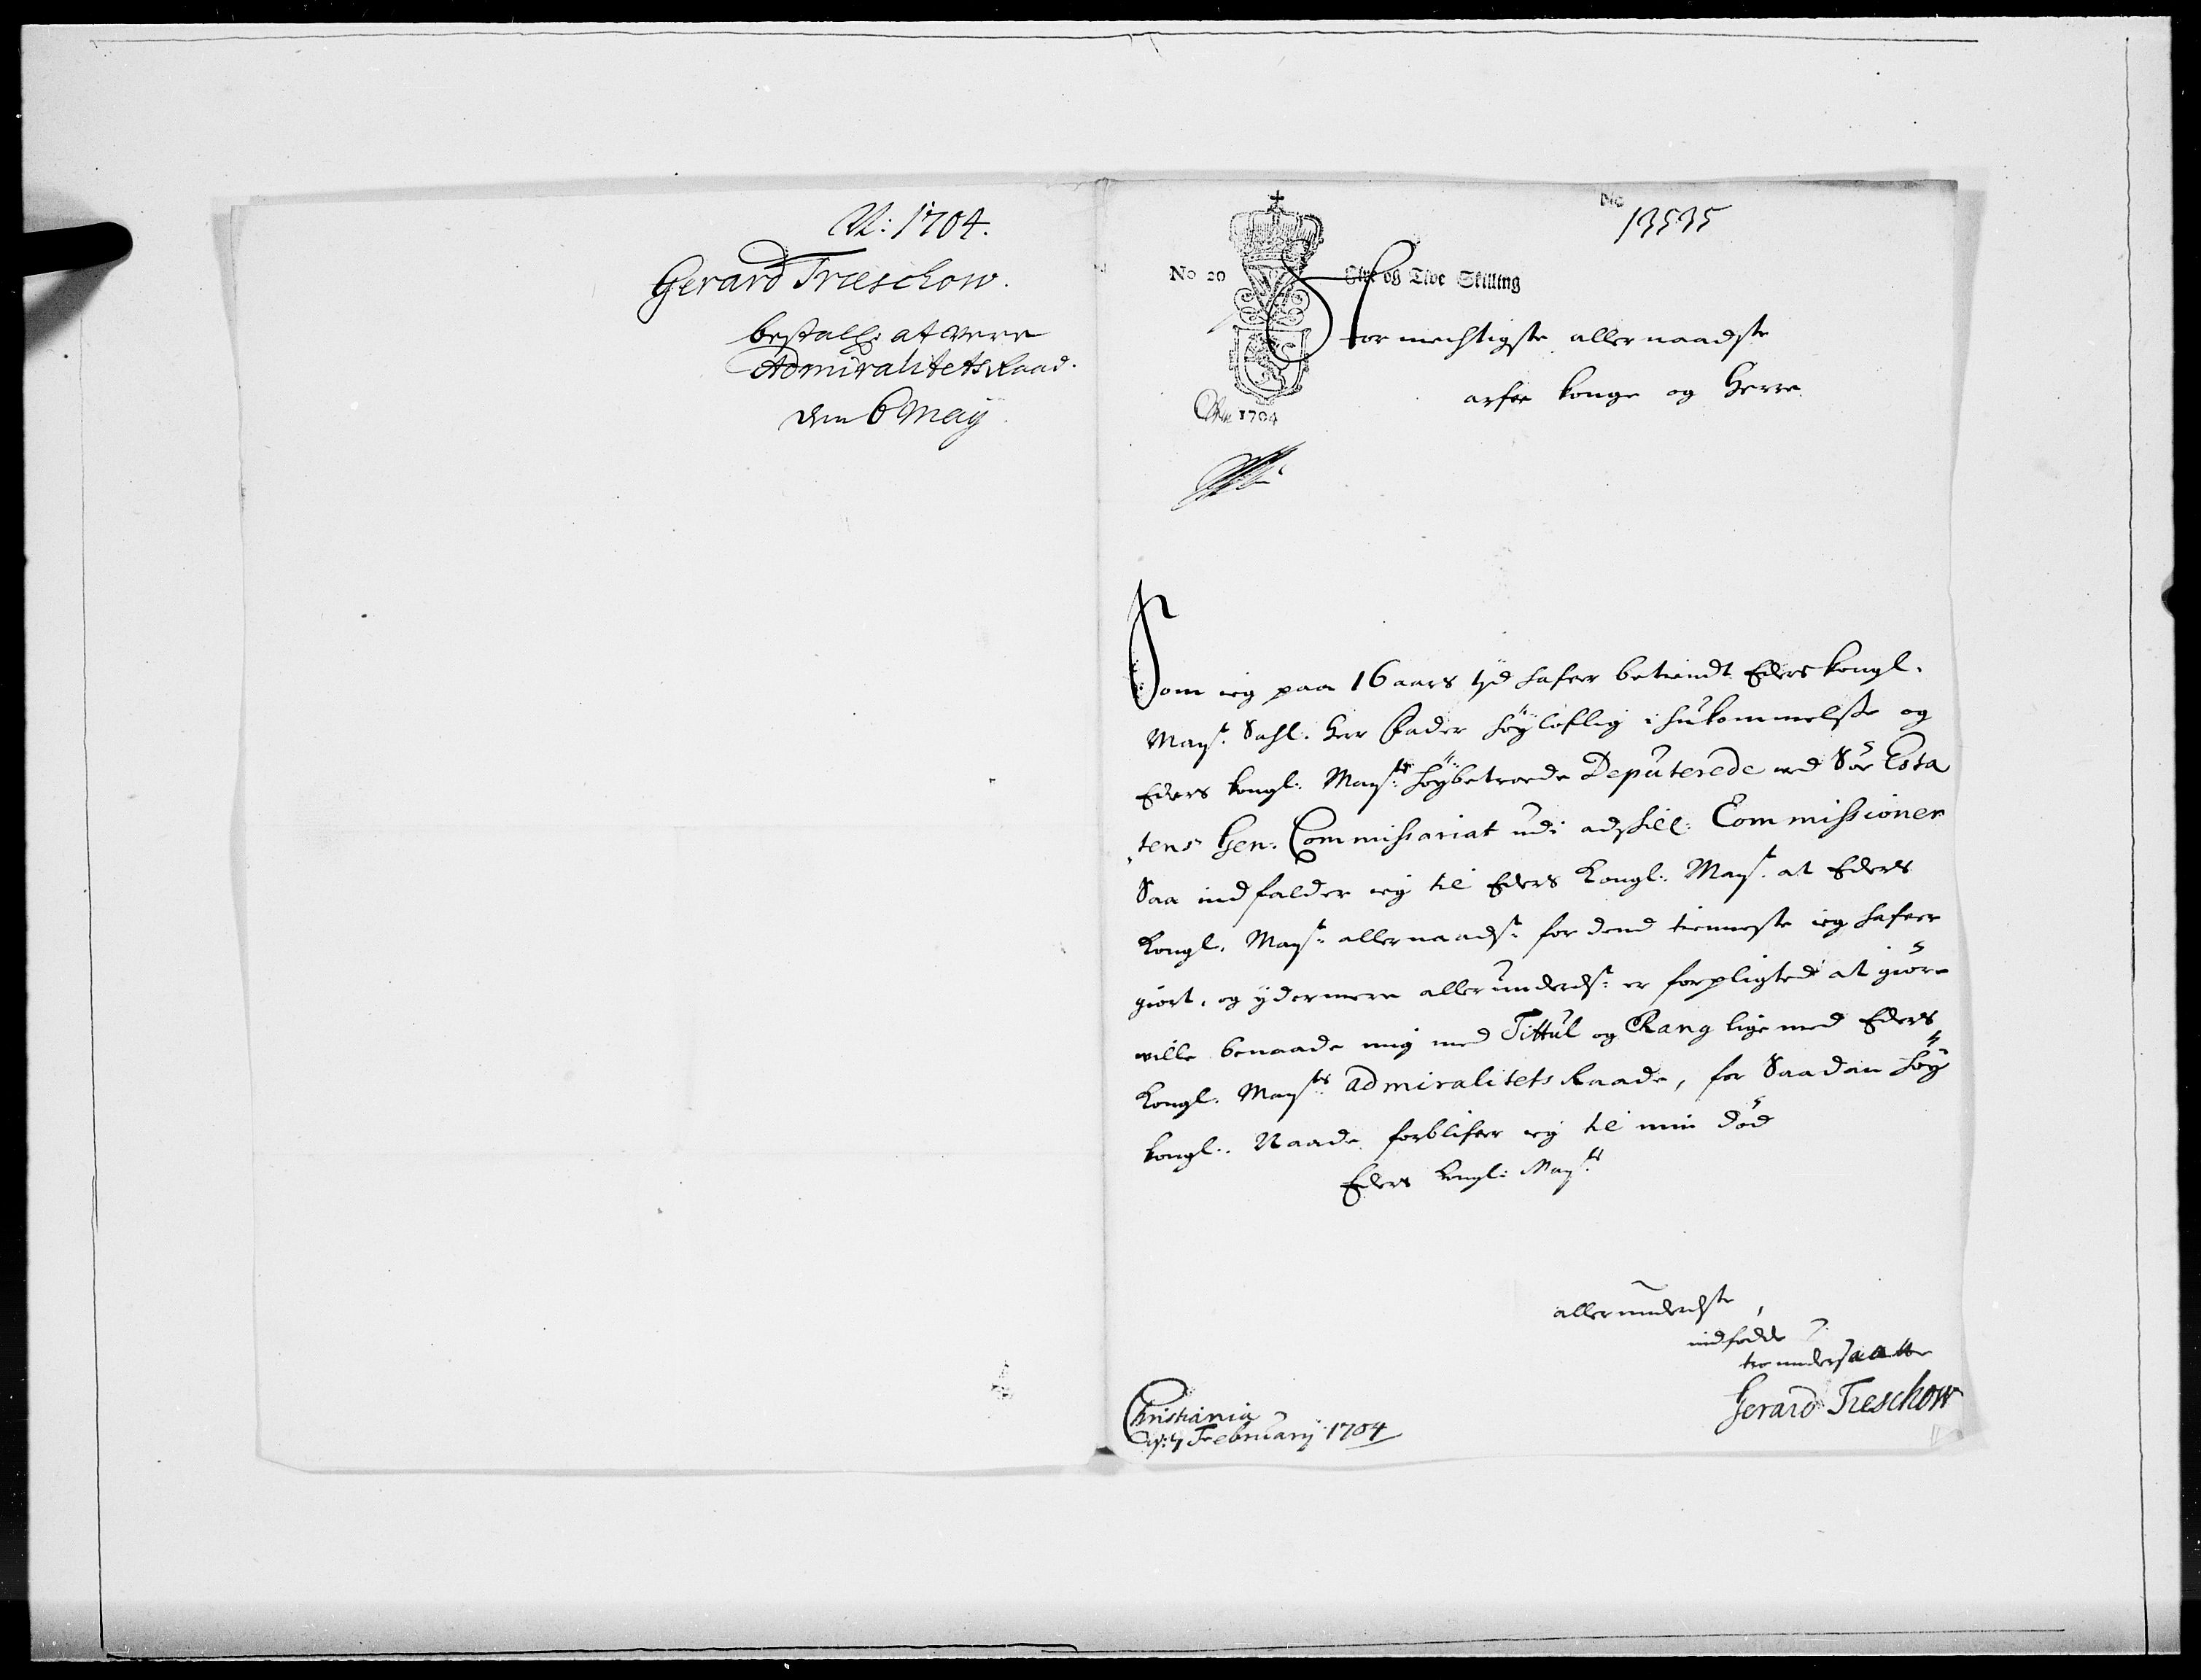 A: 1704.
Gerard Træschow.
bestall: at være
Admiralitets Raad.
den 6 Maÿ
No
13535
No 20
og Tive Skilling
Stormechtigste allernaadste
arfve Konge og Herre
Ao 1704
Som ieg paa 16 aars tjd hafver betiendt Eders Kongl.
Mayst. Sahl. Herr Fader höyloflig ihukommelsse og
Eders Kongl: Maysts: höybetroede Deputerede ved Söe Esta
tens Gen: Commissariat udi adskill: Commissioner
Saa indfalder ieg til Eders Kongl: Mayst. at Eders
Kongl. Mayst: allernaadst: for dend tienneste ieg hafver
giort, og ydermere allerunderdst: er forpligted at giöre
ville benaade mig med Tittul og Rang lige med Eders
Kongl. Maysts: admiralitets Raade, for Saadan höy
Kongl. Naade forblifver ieg til min död
Eders Kongl: Maysts
allerunderdste
indfödde
tro undersaatte
Gerard Treschow
Christiania
February 1704